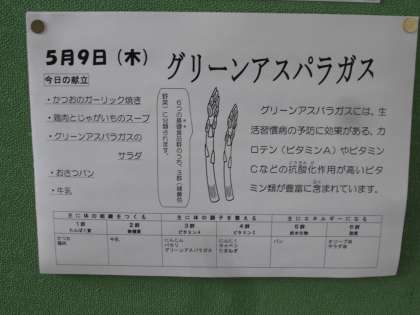 5月9日（木）
グリーンアスパラガス
今日の献立
・かつおのガーリック焼き
・鶏肉とじゃがいものスープ
・グリーンアスパラガスの
サラダ
・おさつパン
・牛乳
6つの基礎食品群のうち、3群（緑黄色
野菜）に分類されます。
グリーンアスパラガスには、生
活習慣病の予防に効果がある、カ
ロテン（ビタミンA）やビタミン
Cなどの抗酸化作用が高いビタ
ミン類が豊富に含まれています。
主に体の組織をつくる 主に体の調子を整える 主にエネルギーになる
1群 2群 3群 4群 5群 6群
たんぱく質 無機質 ビタミンA ビタミンC 炭水化物 脂質
かつお 牛乳 にんじん にんにく パン オリーブ油
鶏肉 パセリ キャベツ サラダ油
グリーンアスパラガス たまねぎ